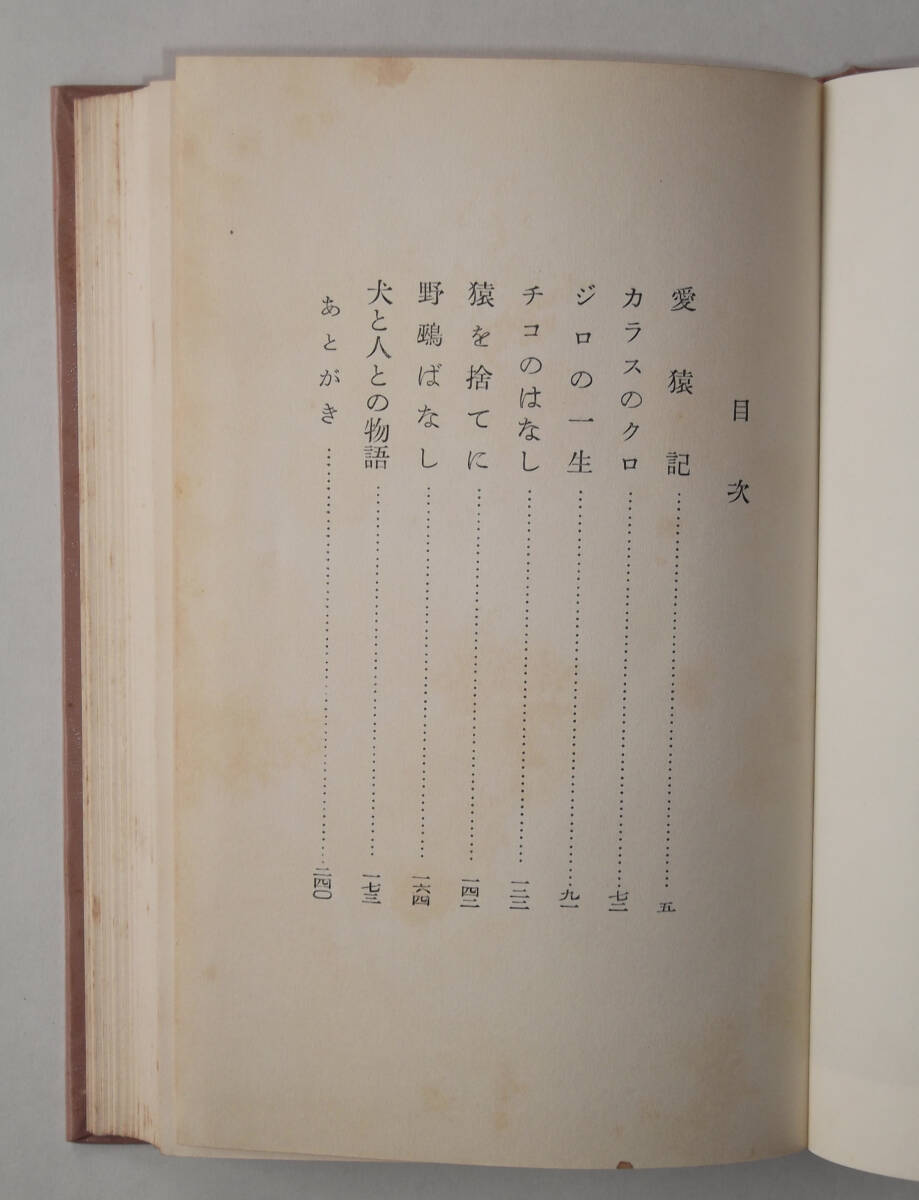 目次
愛猿記……五
カラスのクロ……七二
ジロの一生……九一
チコのはなし……一二二
猿を捨てに……一四二
野鵐ばなし……一六四
犬と人との物語……一七三
あとがき……二四〇